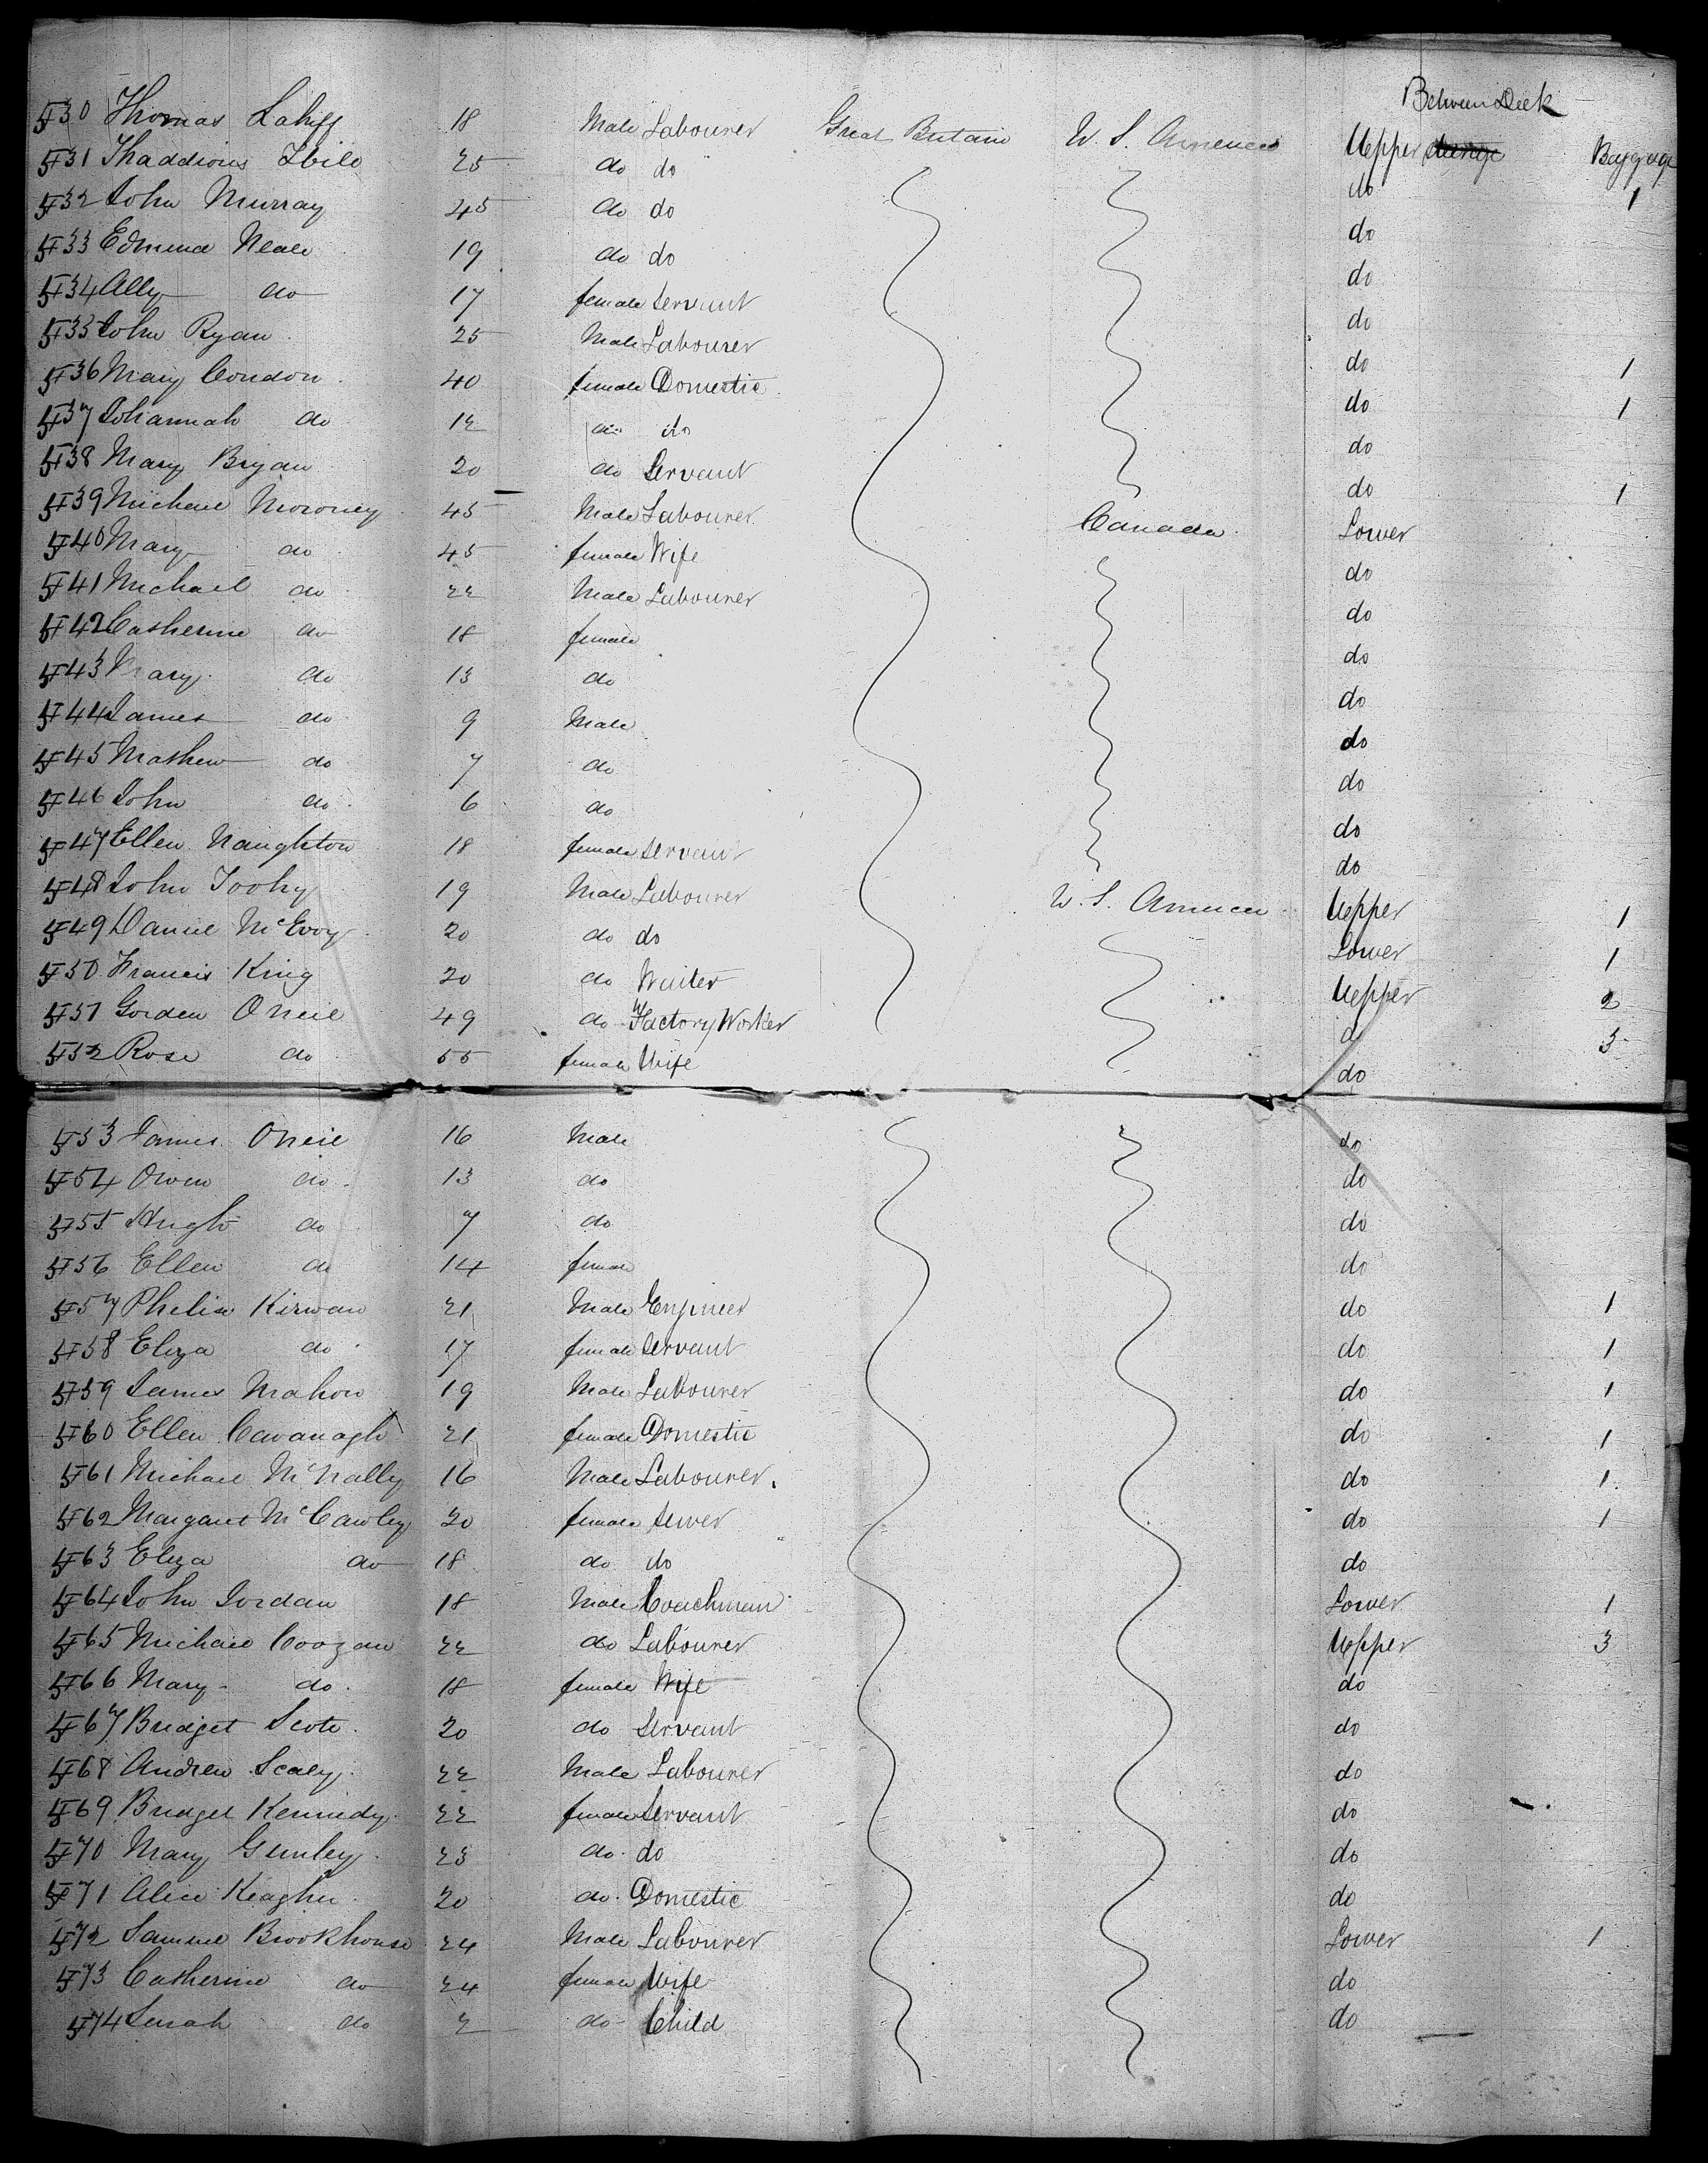 Between Deck
530 Thomas Lahiff 18 Male Labourer Great Britain U. S. America Upper Baggage
531 Thaddious 25 do do do 1
532 John Murray 45 do do do
533 Edmund Neale 19 do do do
534 Ally do 17 female Servant do
535 John Ryan 25 Male Labourer do 1
536 Mary Condon 40 female Domestic do 1
537 Johannah do 12 do do do
538 Mary Bryan 20 do Servant do 1
539 Michael Moroney 45 Male Labourer Canada Lower
540 Mary do 45 female Wife do
541 Michael do 22 Male Labourer do
542 Catherine do 18 female do
543 Mary do 13 do do
544 James do 9 Male do
545 Mathew do 7 do do
546 John do 6 do do
547 Ellen Naughton 18 female Servant do
548 John Toohy 19 Male Labourer U. S. America Upper 1
549 Daniel McEvoy 20 do do Lower 1
550 Francis King 20 do Waiter Upper 2
551 Gorden O Neil 49 do Factory Worker do 3
552 Rose do 55 female Wife do
553 James O Neil 16 Male do
554 Owen do 13 do do
555 Hugh do 7 do do
556 Ellen do 14 female do
557 Phelix Kirwan 21 Male Engineer do 1
558 Eliza do 17 female Servant do 1
559 James Mahon 19 Male Labourer do 1
560 Ellen Cavanagh 21 female Domestic do 1
561 Michael McNally 16 Male Labourer do 1
562 Margaret McCawley 20 female Sewer do 1
563 Eliza do 18 do do do
564 John Jordan 18 Male Coachman Lower 1
565 Michael Coozan 22 do Labourer Upper 3
566 Mary do 18 female Wife do
567 Bridget Scote 20 do Servant do
568 Andrew Scaly 22 Male Labourer do
569 Bridget Kennedy 22 female Servant do
570 Mary Gunley 23 do do do
571 Alice Keaghu 20 do Domestic do
572 Samuel Brookhouse 24 Male Labourer Lower 1
573 Catherine do 24 female Wife do
574 Sarah do 2 do Child do